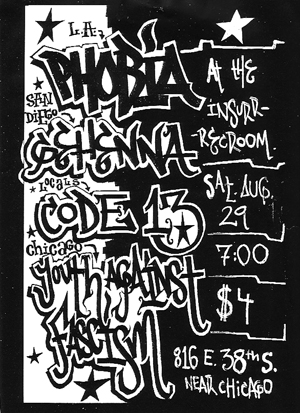 L.A:
PHOBIA
SAN DIEGO
GEHENNA
LOCALS
CODE 13
CHICAGO
YOUTH AGAINST
FASCISM
At the
INSURR-
REEROOM.
SAT. AUG.
29
7:00
$4
816 E. 38th S.
NEAR CHICAGO